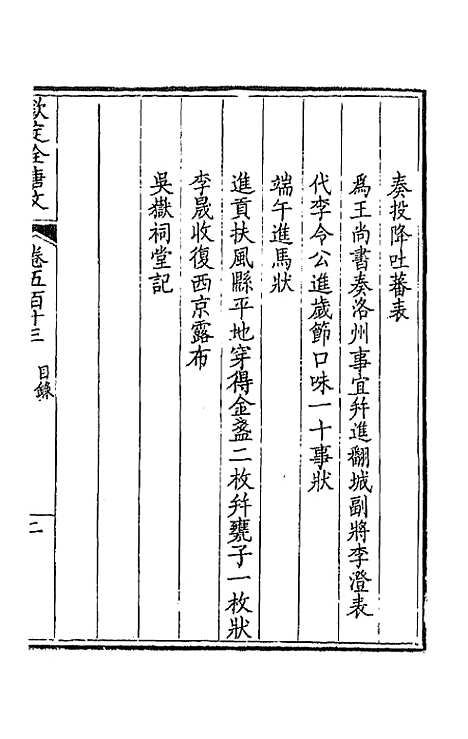 奏投降吐蕃表
為王尚書奏洛州事宜并進翻城副將李澄表
代李令公進歲節口味一十事狀
端午進馬狀
進貢扶風縣平地穿得金盞二枚并甕子一枚狀
李晟收復西京露布
吳嶽祠堂記
欽定全唐文
卷五百十三 目錄
二